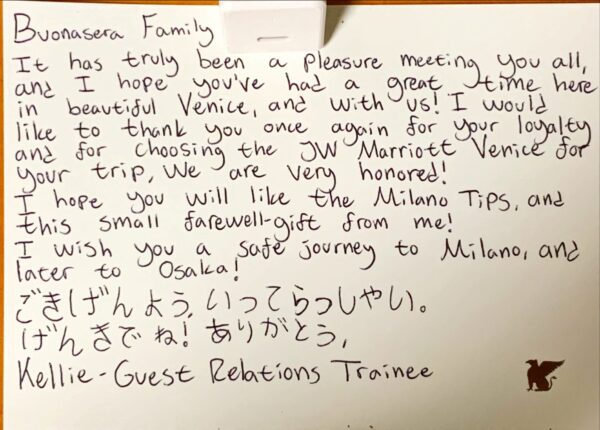 Buonasera Family
It has truly been a pleasure meeting you all,
and I hope you've had a great time here
in beautiful Venice, and with us! I would
like to thank you once again for your loyalty
and for choosing the JW Marriott Venice for
your trip, We are very honored!
I hope you will like the Milano Tips, and
this small farewell-gift from me!
I wish you a safe journey to Milano, and
later to Osaka!
ごきげんよう、いってらっしゃい。
げんきでね! ありがとう、
Kellie - Guest Relations Trainee